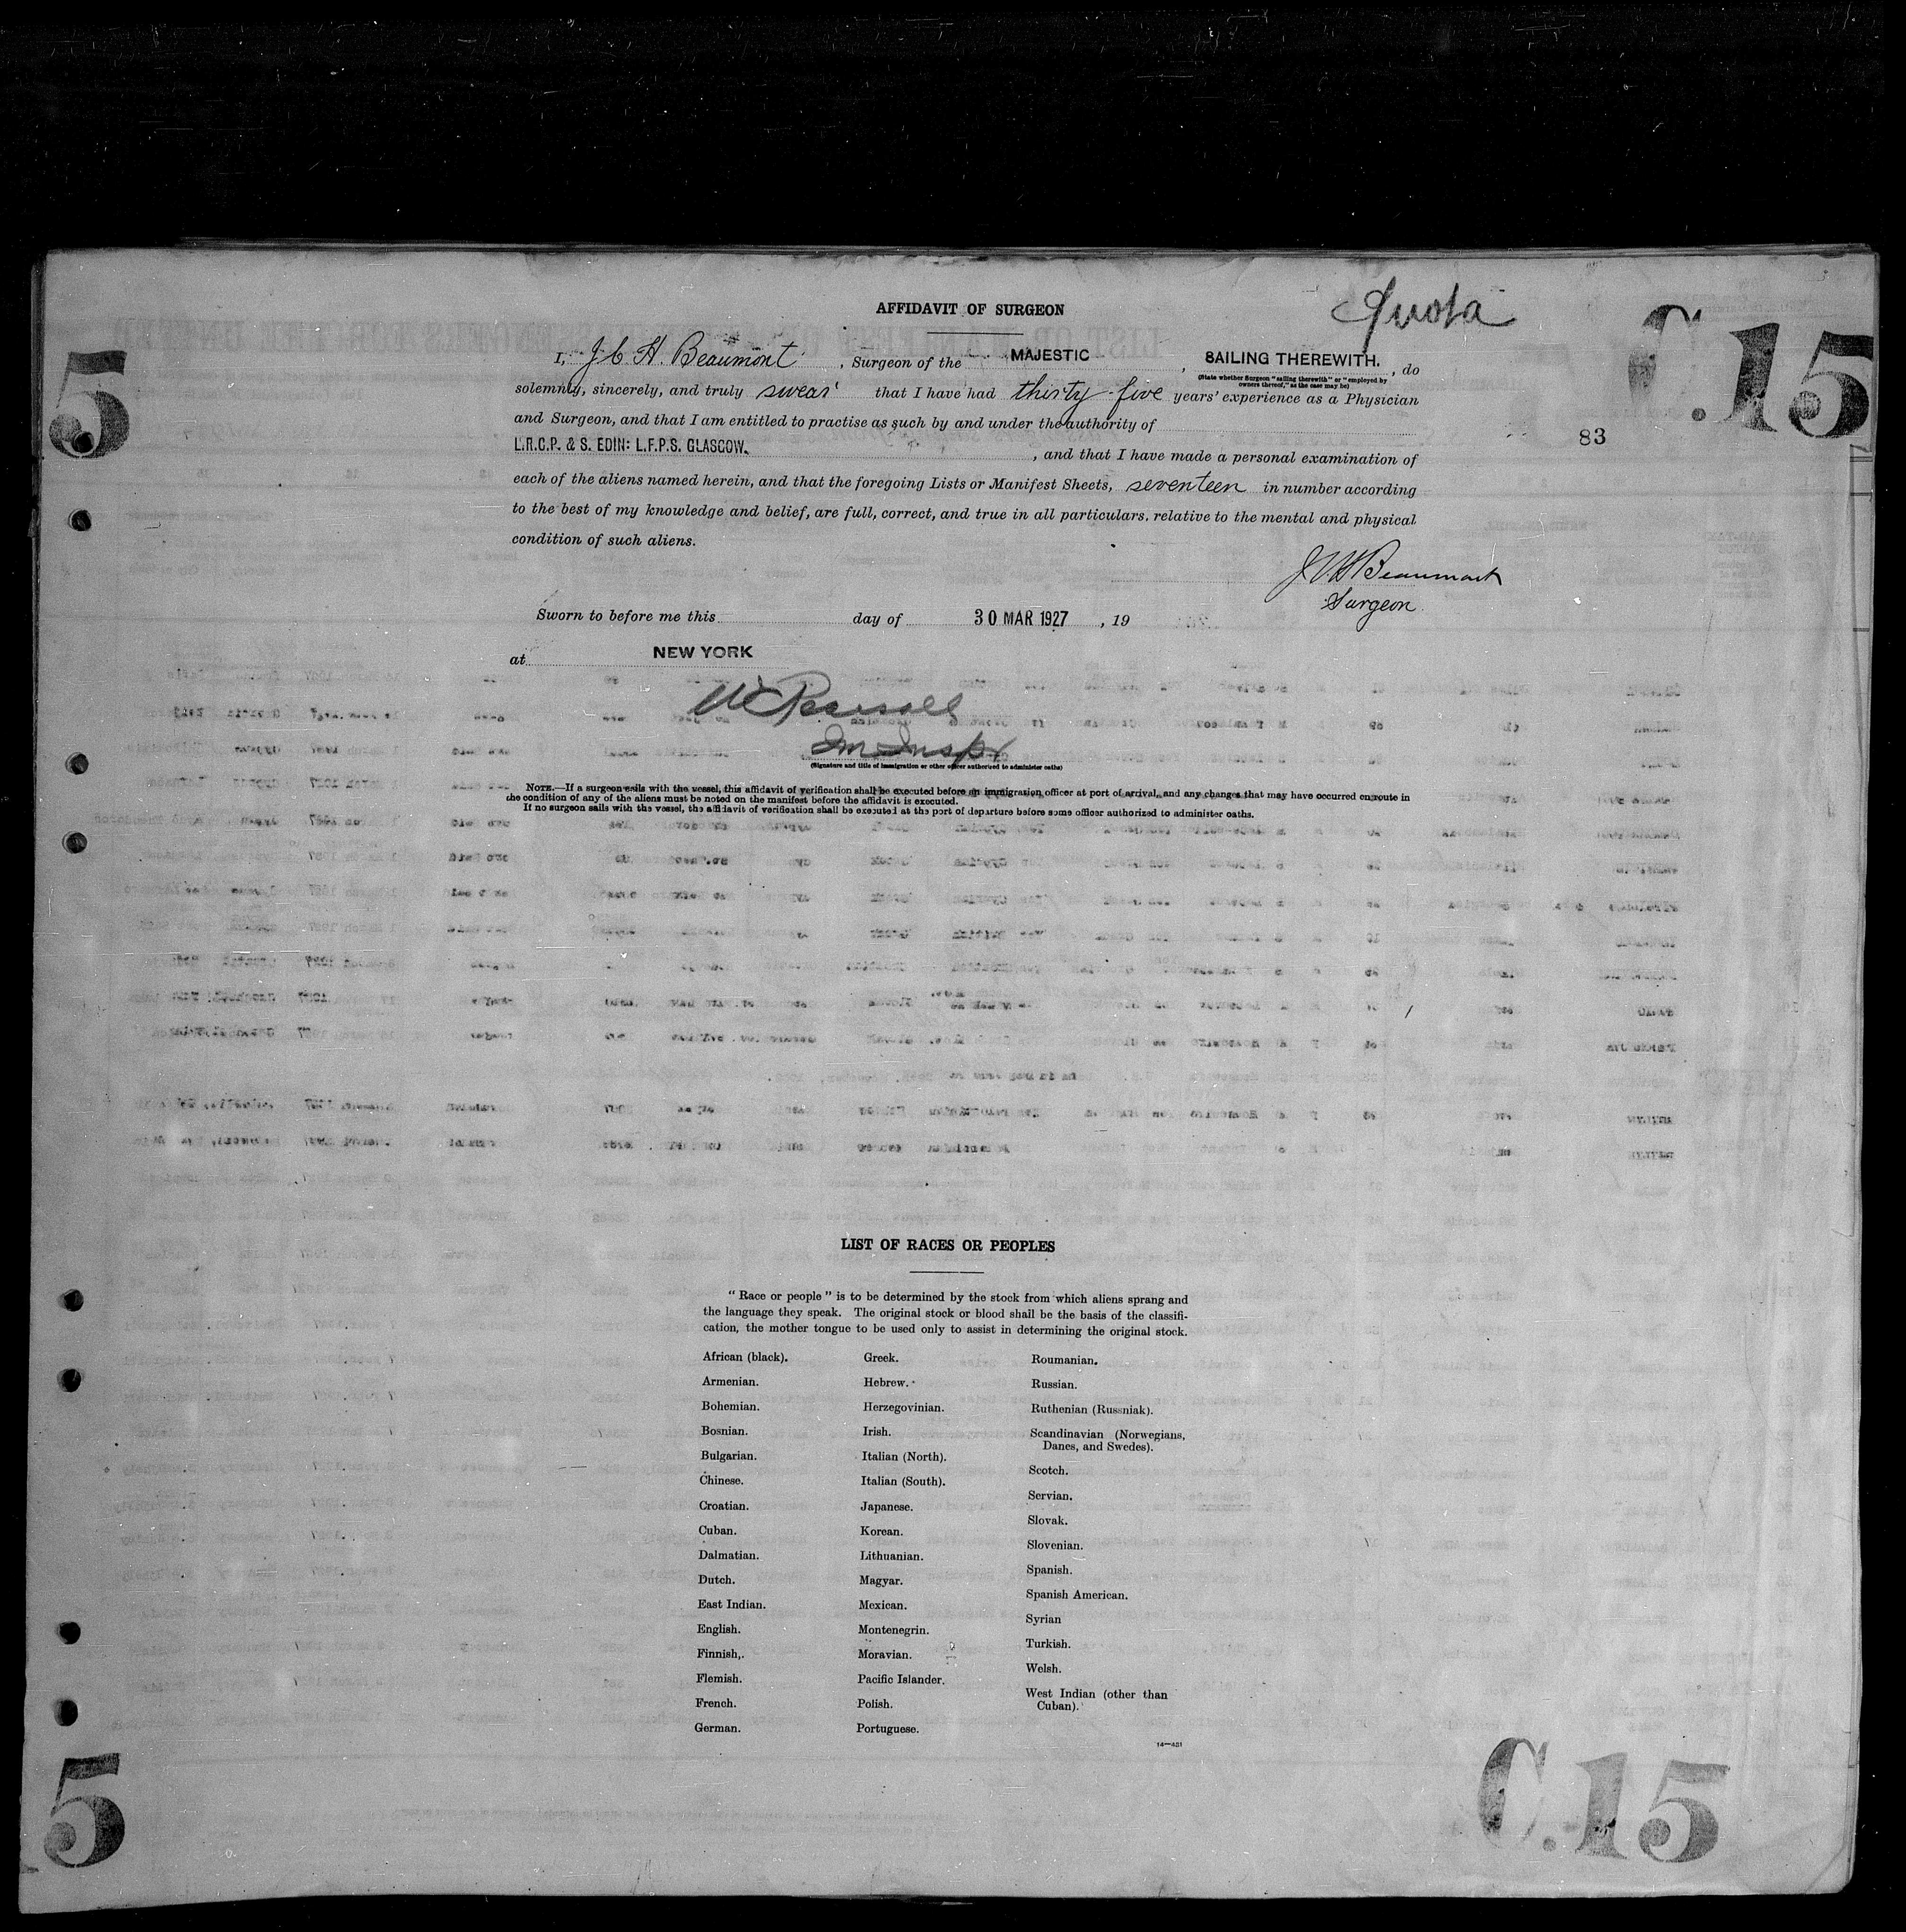 AFFIDAVIT OF SURGEON
Quota
C.15
5
I, J. C. H. Beaumont, Surgeon of the MAJESTIC, SAILING THEREWITH., do
(State whether Surgeon "sailing therewith" or "employed by
owners thereof," as the case may be)
solemnly, sincerely, and truly swear that I have had thirty-five years' experience as a Physician
and Surgeon, and that I am entitled to practise as such by and under the authority of
83
L.R.C.P. & S. EDIN: L.F.P.S. GLASGOW., and that I have made a personal examination of
each of the aliens named herein, and that the foregoing Lists or Manifest Sheets, seventeen in number according
to the best of my knowledge and belief, are full, correct, and true in all particulars. relative to the mental and physical
condition of such aliens.
J C H Beaumont
Surgeon
Sworn to before me this day of 30 MAR 1927, 19
at NEW YORK
Im Inspr
(Signature and title of immigration or other officer authorized to administer oaths)
NOTE.—If a surgeon sails with the vessel, this affidavit of verification shall be executed before an immigration officer at port of arrival, and any changes that may have occurred en route in
the condition of any of the aliens must be noted on the manifest before the affidavit is executed.
If no surgeon sails with the vessel, the affidavit of verification shall be executed at the port of departure before some officer authorized to administer oaths.
LIST OF RACES OR PEOPLES
"Race or people" is to be determined by the stock from which aliens sprang and
the language they speak. The original stock or blood shall be the basis of the classifi-
cation, the mother tongue to be used only to assist in determining the original stock.
African (black).
Armenian.
Bohemian.
Bosnian.
Bulgarian.
Chinese.
Croatian.
Cuban.
Dalmatian.
Dutch.
East Indian.
English.
Finnish,.
Flemish.
French.
German.
Greek.
Hebrew.
Herzegovinian.
Irish.
Italian (North).
Italian (South).
Japanese.
Korean.
Lithuanian.
Magyar.
Mexican.
Montenegrin.
Moravian.
Pacific Islander.
Polish.
Portuguese.
Roumanian.
Russian.
Ruthenian (Russniak).
Scandinavian (Norwegians,
Danes, and Swedes).
Scotch.
Servian.
Slovak.
Slovenian.
Spanish.
Spanish American.
Syrian
Turkish.
Welsh.
West Indian (other than
Cuban).
14—431
5
C.15